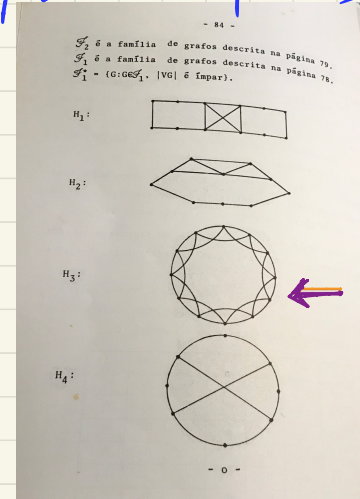 - 84 -
ℱ₂ é a família de grafos descrita na página 79.
ℱ₁ é a família de grafos descrita na página 78.
ℱ₁* = {G:G∈ℱ₁, |VG| é ímpar}.
H₁:
H₂:
H₃:
H₄:
- o -